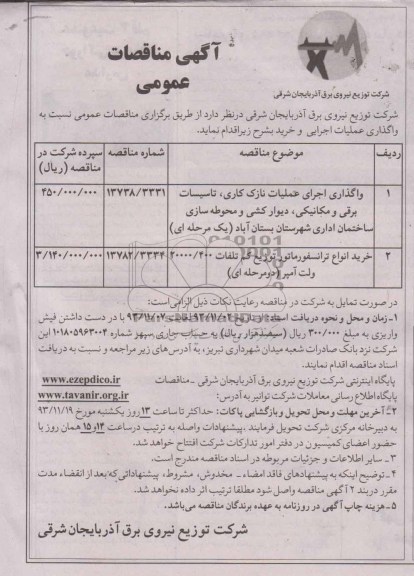 آگهی مناقصات
عمومی
شرکت توزیع نیروی برق آذربایجان شرقی
شرکت توزیع نیروی برق آذربایجان شرقی درنظر دارد از طریق برگزاری مناقصات عمومی نسبت به
واگذاری عملیات اجرایی و خرید بشرح زیراقدام نماید.
ردیف موضوع مناقصه شماره مناقصه سپرده شرکت در مناقصه (ریال)
۱ واگذاری اجرای عملیات نازک کاری، تاسیسات برقی و مکانیکی، دیوار کشی و محوطه سازی ساختمان اداری شهرستان بستان آباد (یک مرحله ای) ۱۳۷۳۸/۳۳۳۱ ۴۵۰/۰۰۰/۰۰۰
۲ خرید انواع ترانسفورماتور توزیع کم تلفات ۲۰۰۰۰/۴۰۰ ولت آمپر (دومرحله ای) ۱۳۷۸۲/۳۳۳۴ ۳/۱۴۰/۰۰۰/۰۰۰
در صورت تمایل به شرکت در مناقصه رعایت نکات ذیل الزامی است:
۱- زمان و محل و نحوه دریافت اسناد: از تاریخ ۹۳/۱۱/۰۲ لغایت ۹۳/۱۱/۰۷ با در دست داشتن فیش
واریزی به مبلغ ۳۰۰/۰۰۰ ریال (سیصد هزار ریال) به حساب جاری سپهر شماره ۰۱۰۱۸۰۵۹۶۳۰۰۴ این
شرکت نزد بانک صادرات شعبه میدان شهرداری تبریز، به آدرس های زیر مراجعه و نسبت به دریافت
اسناد مناقصه اقدام نمایند.
پایگاه اینترنتی شرکت توزیع نیروی برق آذربایجان شرقی - مناقصات www.ezepdico.ir
پایگاه اطلاع رسانی معاملات شرکت توانیر به آدرس: www.tavanir.org.ir
۲- آخرین مهلت و محل تحویل و بازگشایی پاکات: حداکثر تا ساعت ۱۳ روز یکشنبه مورخ ۹۳/۱۱/۱۹
به دبیرخانه مرکزی شرکت تحویل فرمایند. پیشنهادات واصله به ترتیب در ساعت ۱۴ و ۱۵ همان روز با
حضور اعضای کمیسیون در دفتر امور تدارکات شرکت افتتاح خواهد شد.
۳- سایر اطلاعات و جزئیات مربوطه در اسناد مناقصه مندرج است.
۴- توضیح اینکه به پیشنهادهای فاقد امضاء - مخدوش، مشروط، پیشنهاداتی که بعد از انقضاء مدت
مقرر در بند ۲ آگهی مناقصه واصل شود مطلقا ترتیب اثر داده نخواهد شد.
۵- هزینه چاپ آگهی در روزنامه به عهده برندگان مناقصه می باشد.
شرکت توزیع نیروی برق آذربایجان شرقی